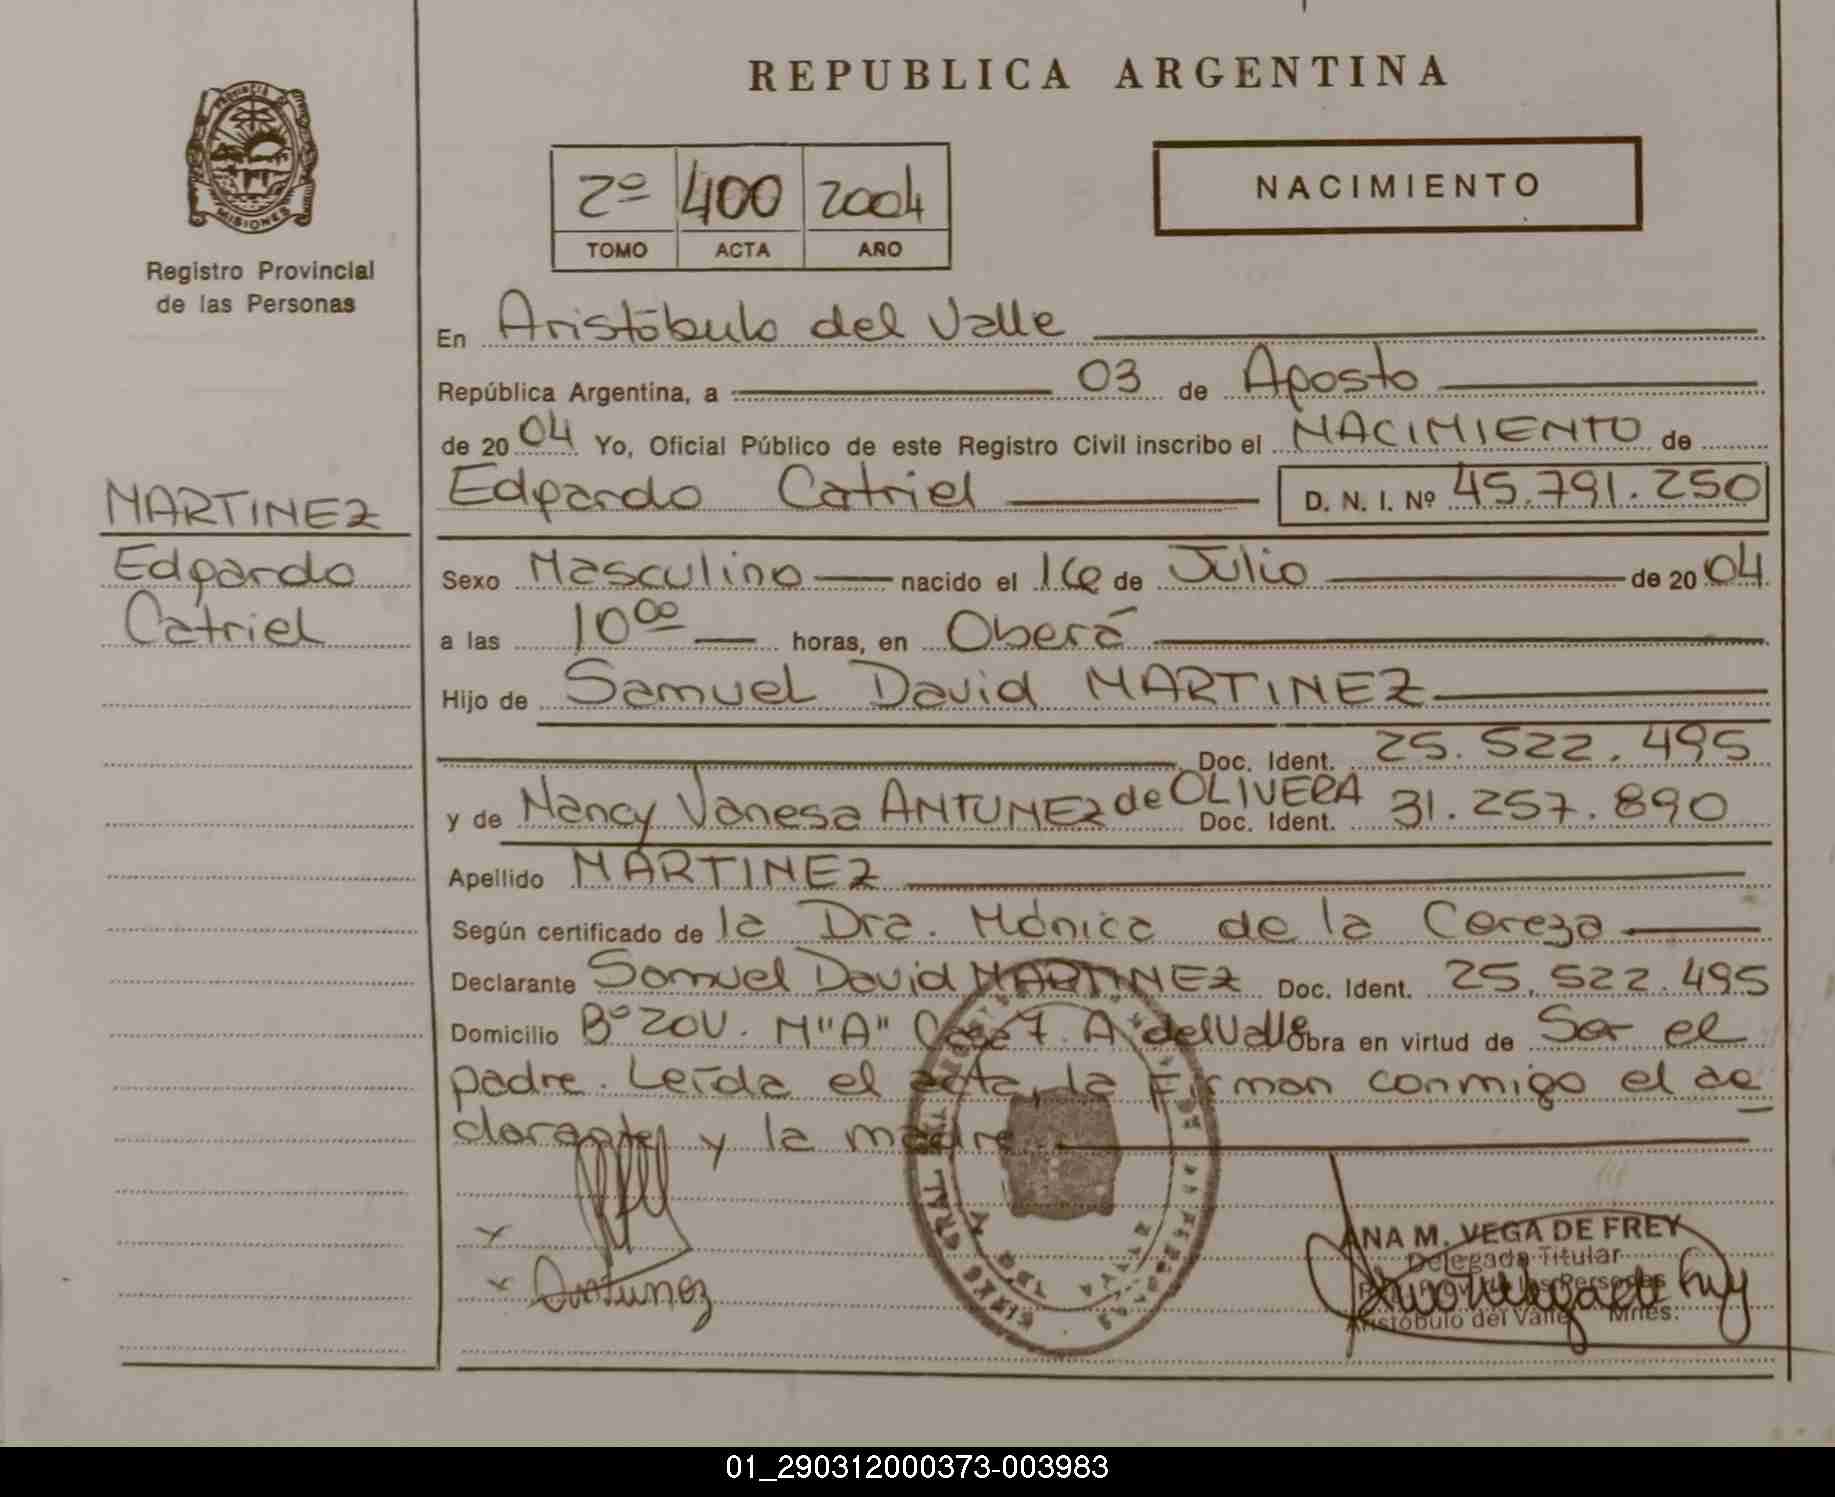 REPUBLICA ARGENTINA
PROVINCIA DE
MISIONES
Registro Provincial
de las Personas
2º 400 2004
TOMO ACTA AÑO
NACIMIENTO
En Aristóbulo del Valle
República Argentina, a 03 de Agosto
de 2004 Yo, Oficial Público de este Registro Civil inscribo el NACIMIENTO de
Edgardo Catriel D. N. I. Nº 45.791.250
MARTINEZ
Edgardo
Catriel
Sexo Masculino nacido el 16 de Julio de 2004
a las 10⁰⁰ horas, en Oberá
Hijo de Samuel David MARTINEZ
Doc. Ident. 25.522.495
y de Nancy Vanesa ANTUNEZ de OLIVERA Doc. Ident. 31.257.890
Apellido MARTINEZ
Según certificado de la Dra. Mónica de la Cereza
Declarante Samuel David MARTINEZ Doc. Ident. 25.522.495
Domicilio Bº ZOU. M"A" Casa 7. A del Valle Obra en virtud de Ser el
padre. Leída el acta, la firman conmigo el de
clarante y la madre.
x
x Antunez
ANA M. VEGA DE FREY
Delegada Titular
de las Personas
Aristóbulo del Valle Mnes.
01_290312000373-003983